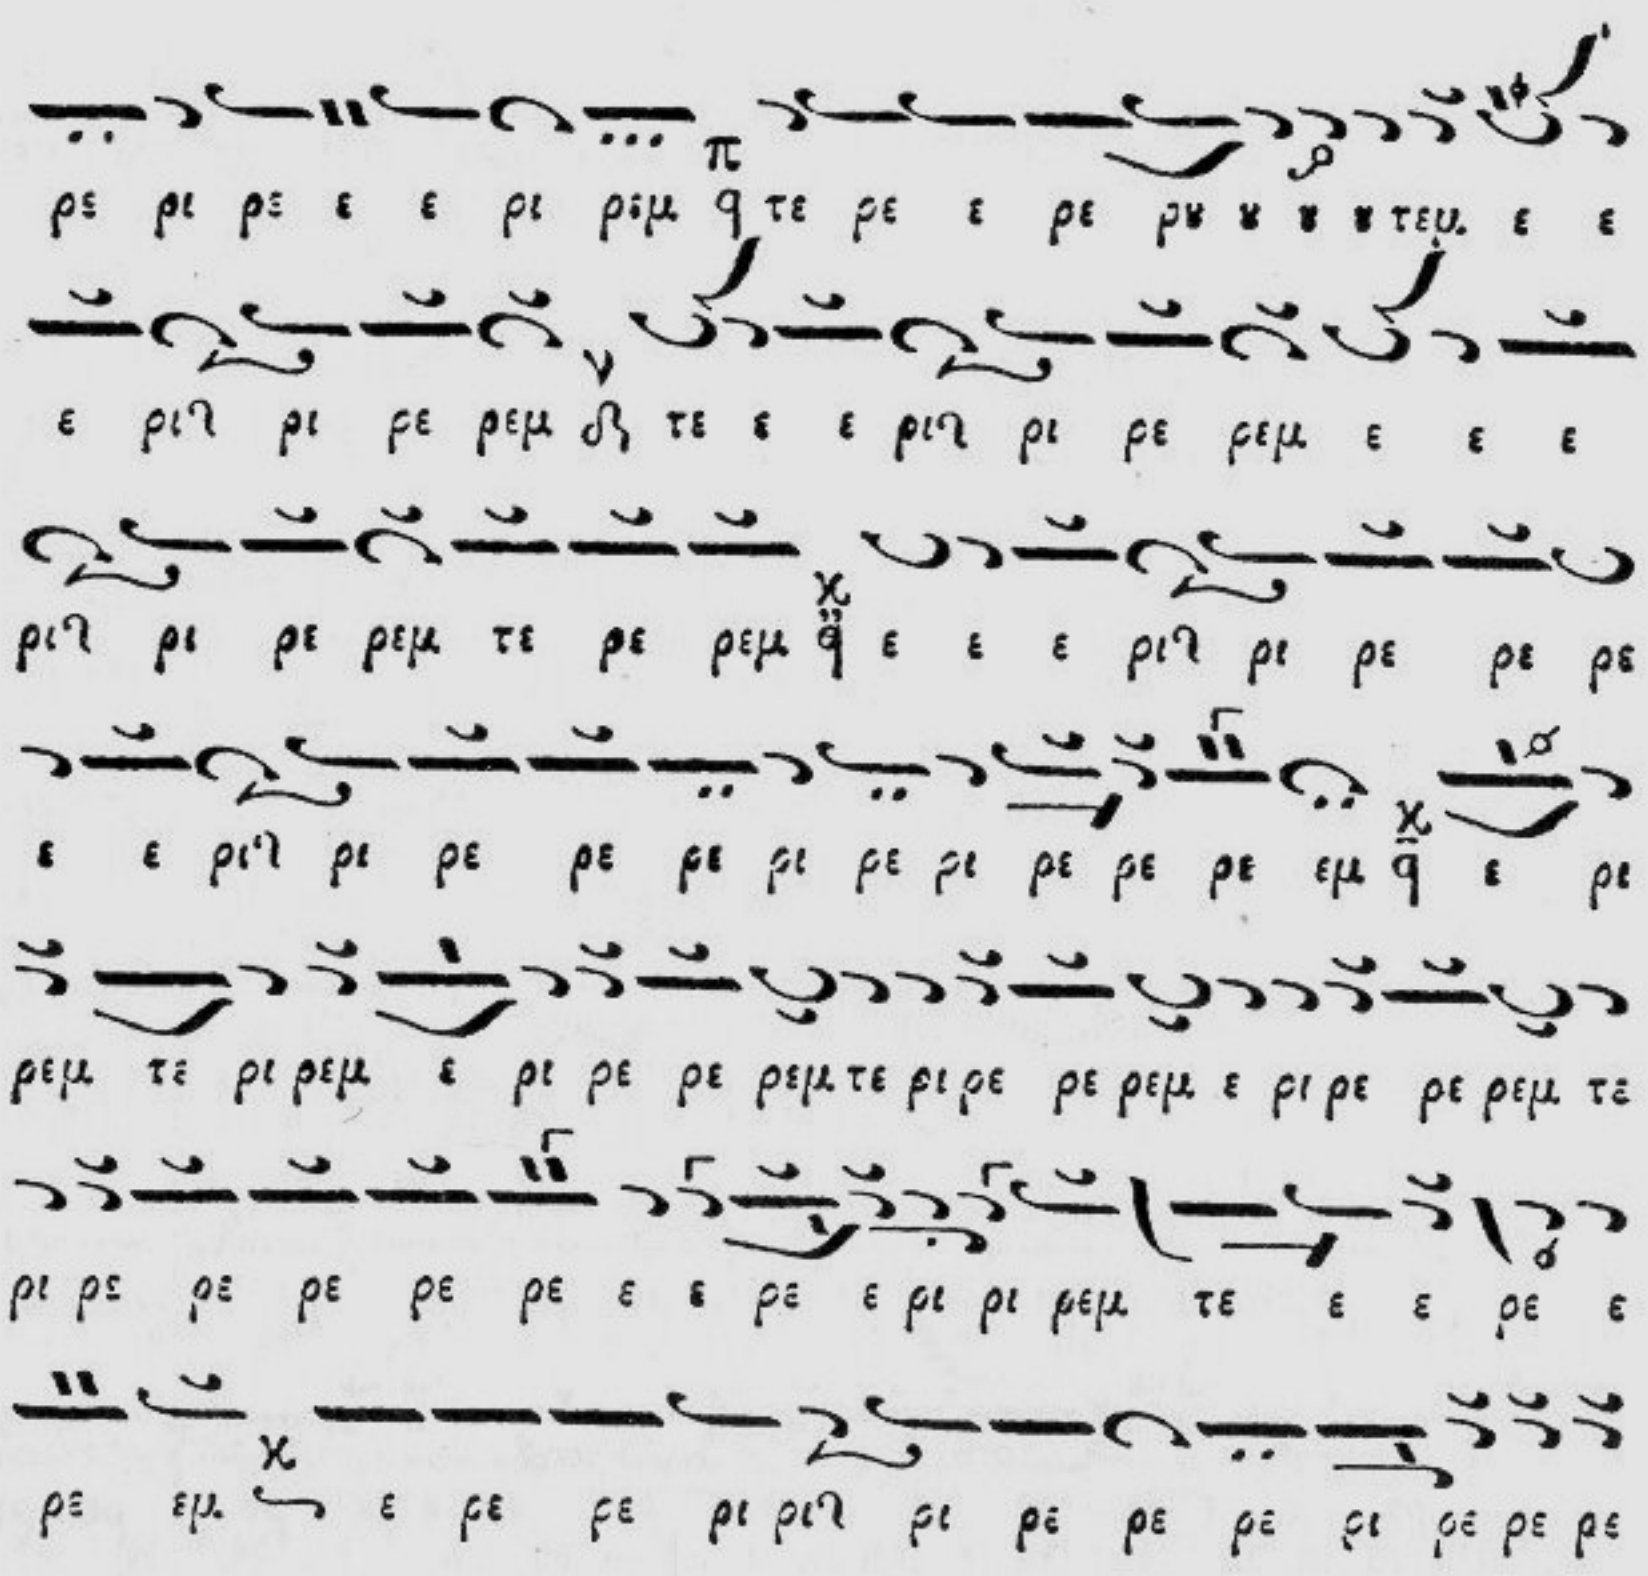 ρε ρι ρε ε ε ρι ρεμ π q τε ρε ε ρε ρȣ ȣ ȣ ȣ τεμ ε ε
ε ριλ ρι ρε ρεμ ν τε ε ε ριλ ρι ρε ρεμ ε ε ε
ριλ ρι ρε ρεμ τε ρε ρεμ χ q ε ε ε ριλ ρι ρε ρε ρε
ε ε ριλ ρι ρε ρε ρε ρι ρε ρι ρε ρε ρε εμ χ q ε ρι
ρεμ τε ρι ρεμ ε ρι ρε ρε ρεμ τε ρι ρε ρε ρεμ ε ρι ρε ρε ρεμ τε
ρι ρε ρε ρε ρε ρε ε ε ρε ε ρι ρι ρεμ τε ε ε ρε ε
ρε εμ χ ε ρε ρε ρι ριλ ρι ρε ρε ρε ρι ρε ρε ρε